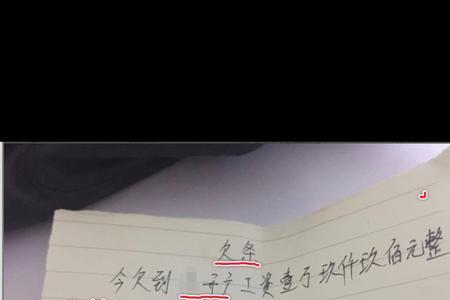 欠条
今欠到 工资壹万玖仟玖佰元整